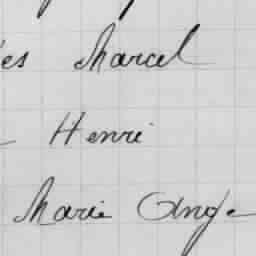 es Marcel
Henri
Marie Ange